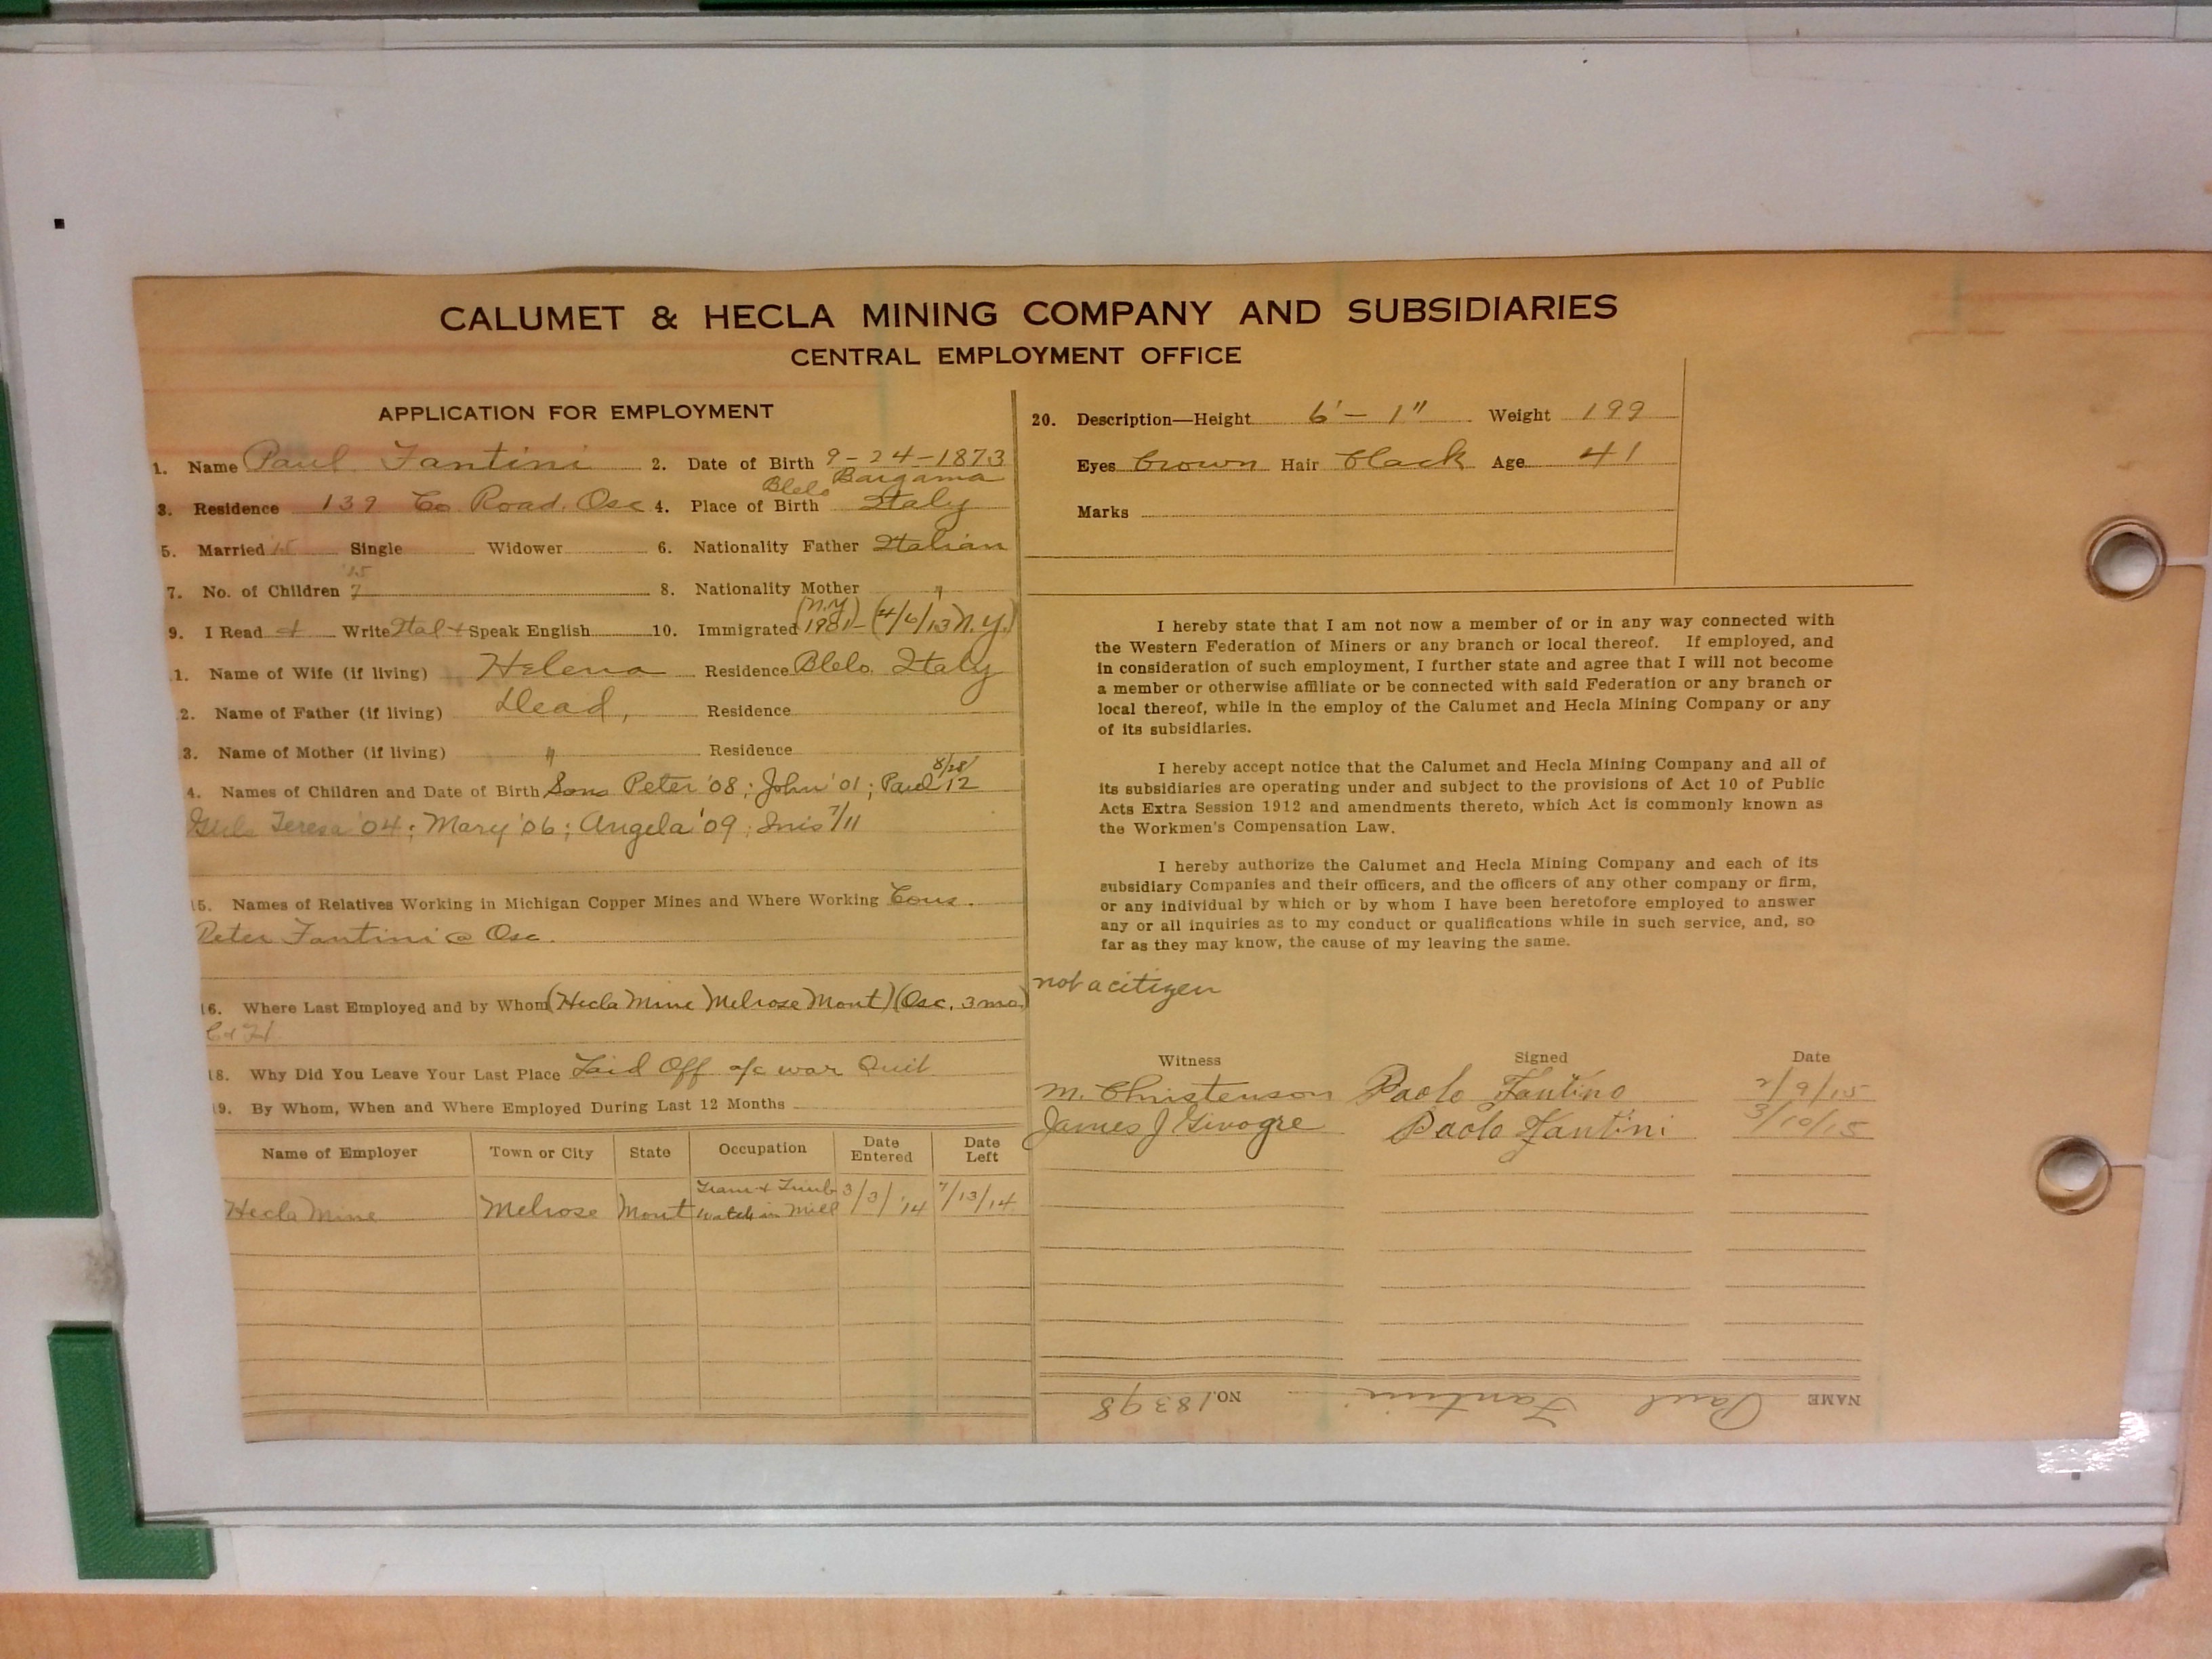 CALUMET & HECLA MINING COMPANY AND SUBSIDIARIES
CENTRAL EMPLOYMENT OFFICE
APPLICATION FOR EMPLOYMENT
1. Name Paul Fantini 2. Date of Birth 9-24-1873
Blelo Bargama
3. Residence 139 Co Road. Osc 4. Place of Birth Italy
5. Married '15 Single Widower 6. Nationality Father Italian
'15
7. No. of Children 7 8. Nationality Mother "
9. I Read & Write Ital + Speak English 10. Immigrated (N.Y) 1901- (4/6/13 N.Y.)
1. Name of Wife (if living) Helena Residence Blelo, Italy
2. Name of Father (if living) Dead, Residence
3. Name of Mother (if living) " Residence
4. Names of Children and Date of Birth Sons Peter '08; John '01; Paul 8/28/12
Girls Teresa '04; Mary '06; Angela '09; Inis 7/11
15. Names of Relatives Working in Michigan Copper Mines and Where Working Cous.
Peter Fantini @ Osc.
16. Where Last Employed and by Whom (Hecla Mine Melrose Mont) (Osc. 3 mo.)
C & H.
18. Why Did You Leave Your Last Place Laid Off a/c war Quit
19. By Whom, When and Where Employed During Last 12 Months
Name of Employer Town or City State Occupation Date Entered Date Left
Tram & Timb
Hecla Mine Melrose Mont Watch in Mill 3/3/'14 7/13/14
20. Description—Height 6'-1" Weight 199
Eyes brown Hair black Age 41
Marks
I hereby state that I am not now a member of or in any way connected with
the Western Federation of Miners or any branch or local thereof. If employed, and
in consideration of such employment, I further state and agree that I will not become
a member or otherwise affiliate or be connected with said Federation or any branch or
local thereof, while in the employ of the Calumet and Hecla Mining Company or any
of its subsidiaries.
I hereby accept notice that the Calumet and Hecla Mining Company and all of
its subsidiaries are operating under and subject to the provisions of Act 10 of Public
Acts Extra Session 1912 and amendments thereto, which Act is commonly known as
the Workmen's Compensation Law.
I hereby authorize the Calumet and Hecla Mining Company and each of its
subsidiary Companies and their officers, and the officers of any other company or firm,
or any individual by which or by whom I have been heretofore employed to answer
any or all inquiries as to my conduct or qualifications while in such service, and, so
far as they may know, the cause of my leaving the same.
not a citizen
Witness Signed Date
M. Christenson Paolo Fantino 2/9/15
James J Paolo Fantini 3/10/15
NAME Paul Fantini NO. 18398